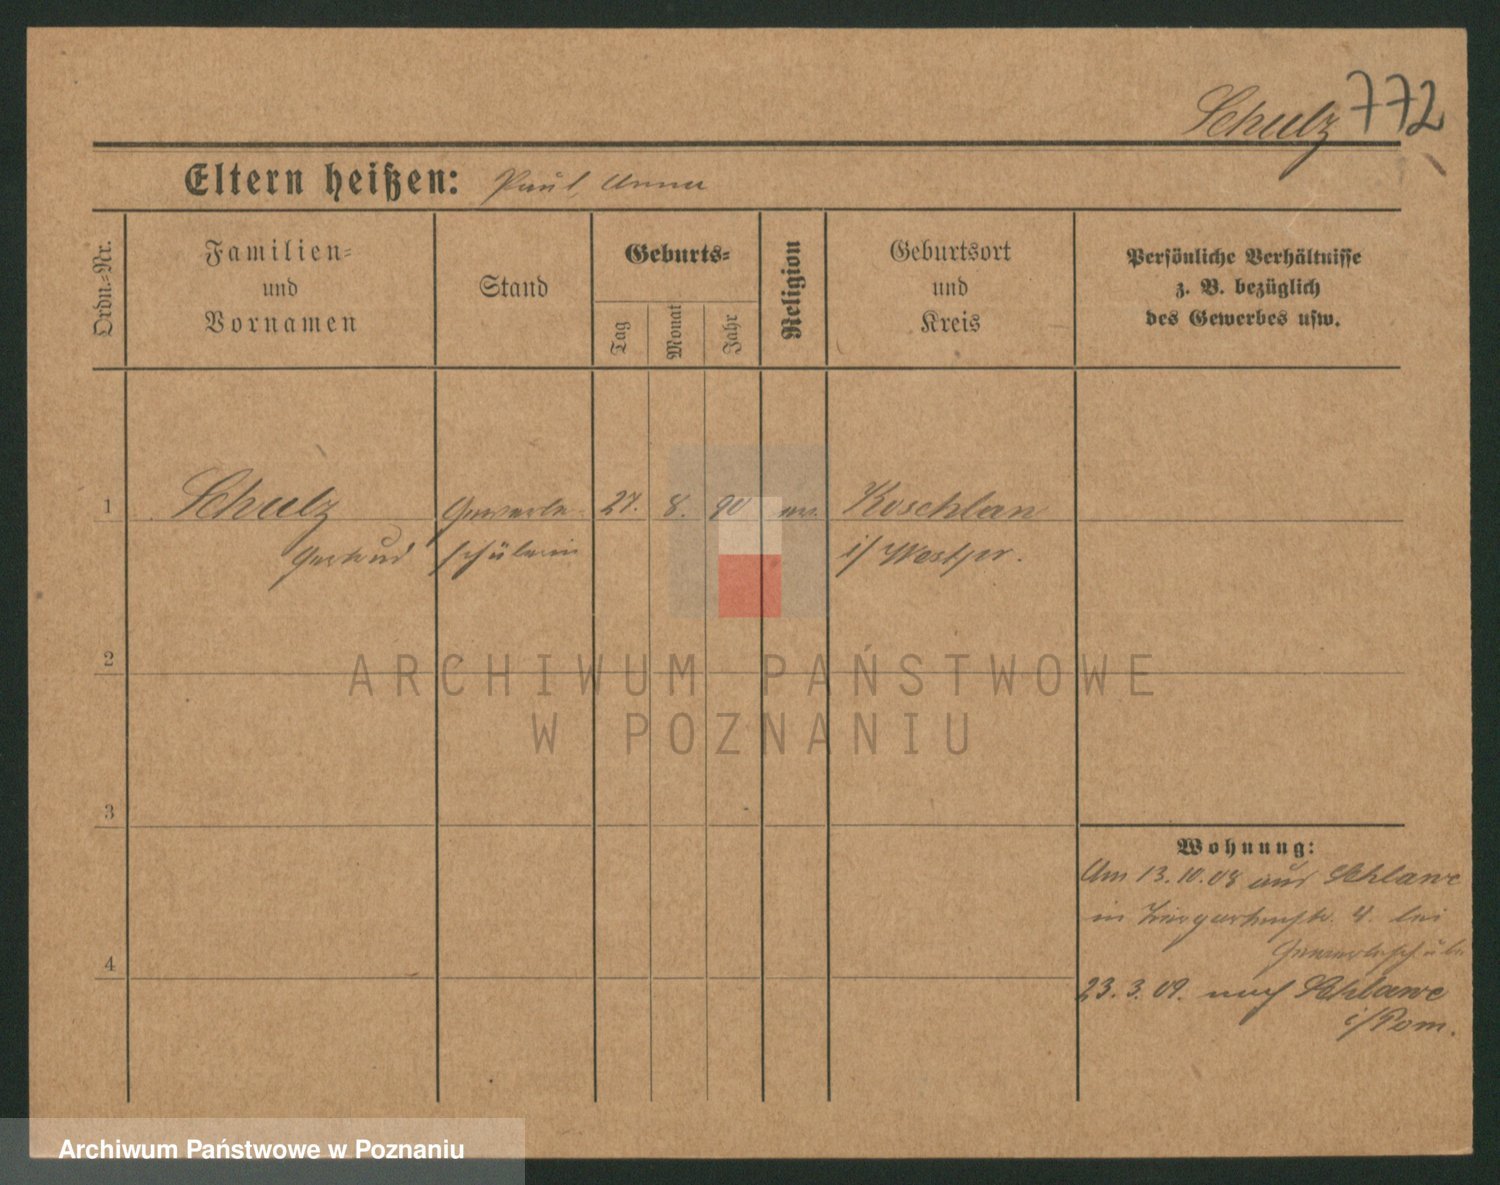 Schulz 772
Eltern heißen: Paul, Anna
Ordn.-Nr.
Familien-
und
Vornamen
Stand
Geburts-
Tag
Monat
Jahr
Religion
Geburtsort
und
Kreis
Persönliche Verhältnisse
z. B. bezüglich
des Gewerbes usw.
1 Schulz Gewerbe- 27. 8. 90 ev. Koschlau
Gertrud schülerin i/ Westpr.
2
ARCHIWUM PAŃSTWOWE
W POZNANIU
3
Wohnung:
Am 13.10.08 aus Schlawe
in Tiergartenstr. 4. bei
4
23.3.09. nach Schlawe
i/Pom.
Archiwum Państwowe w Poznaniu